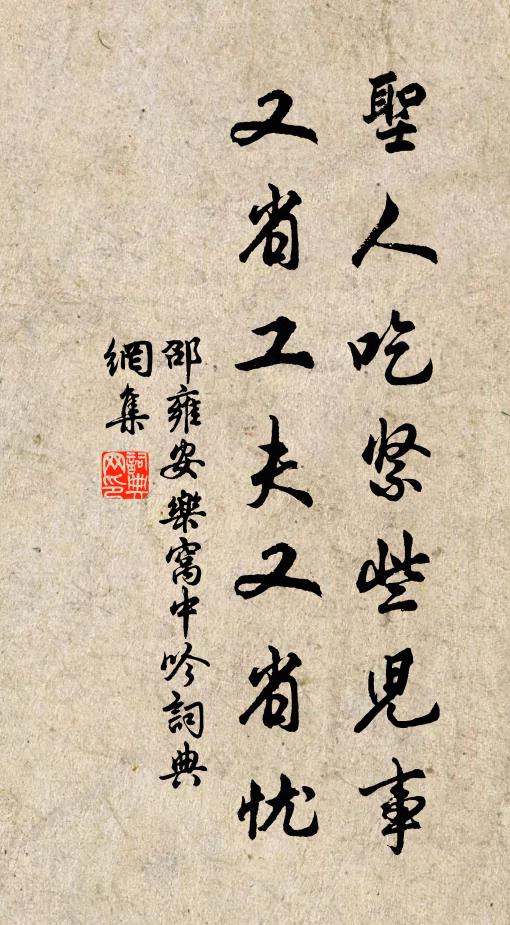 聖人吃緊些兒事
又省工夫又省忧
邵雍安樂窩中吟詞典
網集
詞典
网印